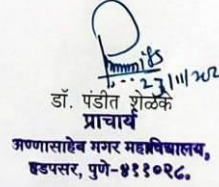 23/11/202
डॉ. पंडीत शेळके
प्राचार्य
अण्णासाहेब मगर महाविद्यालय,
हडपसर, पुणे-४११०२८.